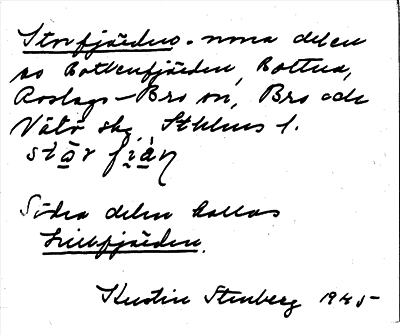 Storfjärden - norra delen
av Bottenfjärden, Bottna,
Roslags-Bro sn, Bro och
Vätö skg, Sthlms l.
stōr fjān
Södra delen kallas
Lillfjärden.
Kerstin Stenberg 1945